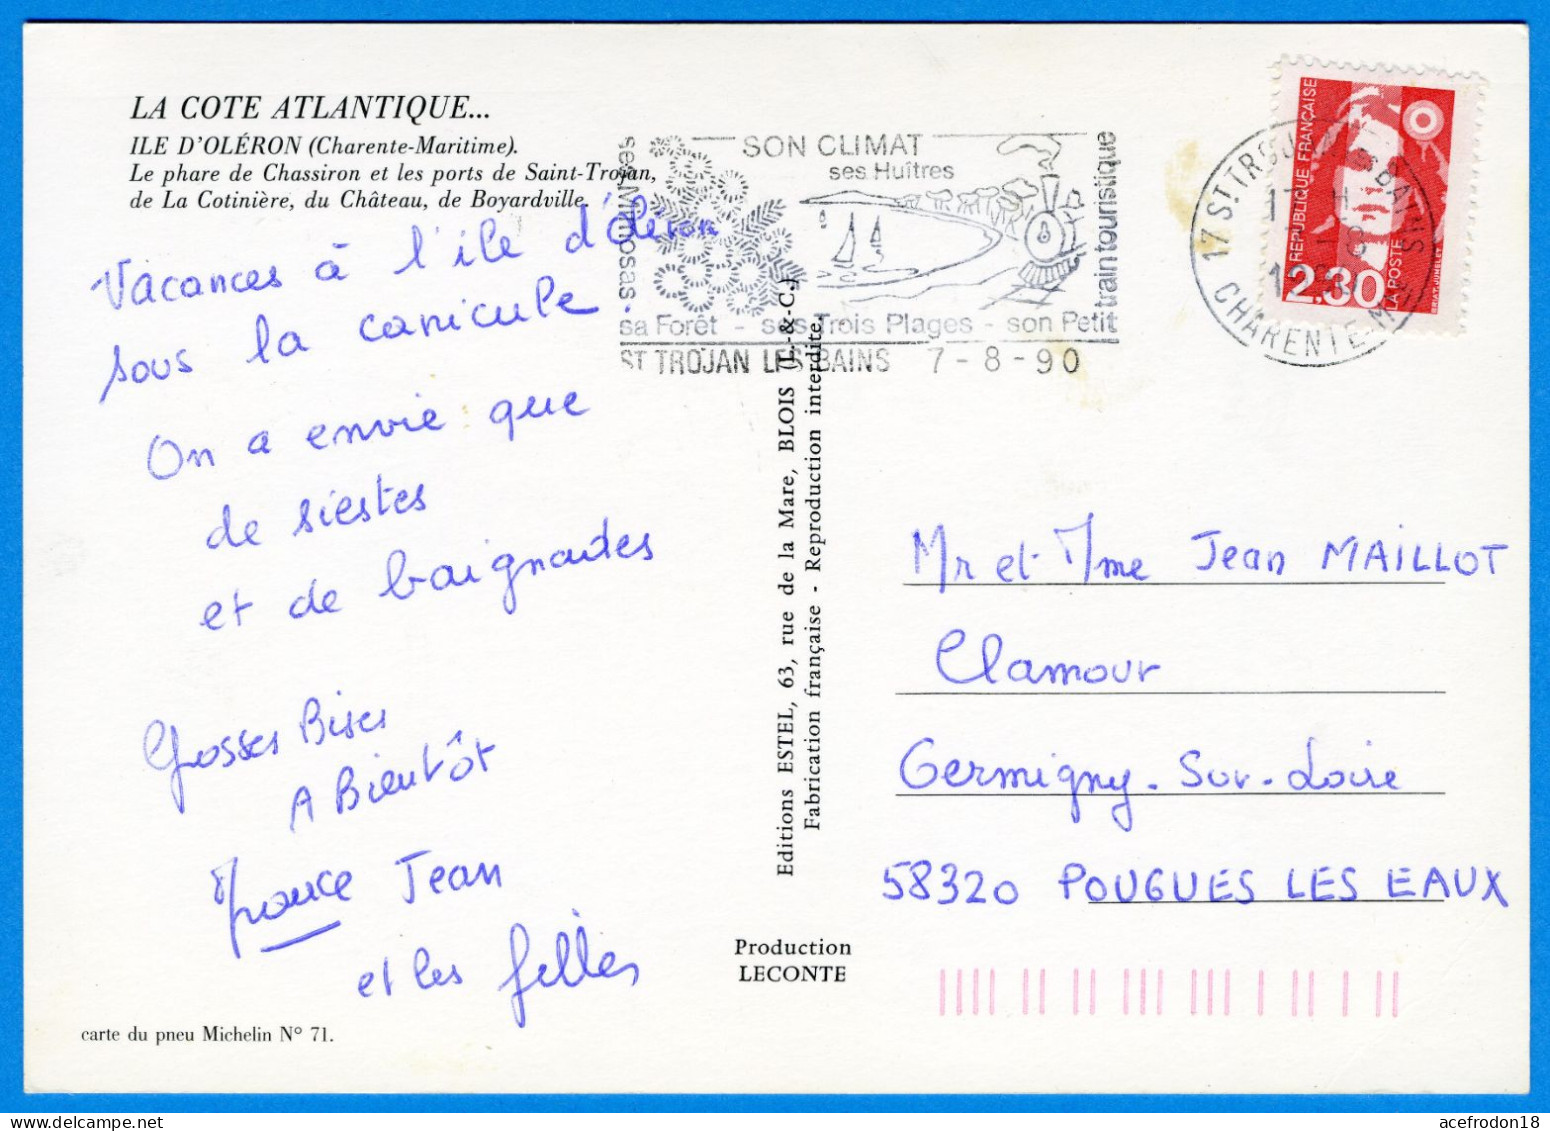 LA COTE ATLANTIQUE...
ILE D'OLÉRON (Charente-Maritime).
Le phare de Chassiron et les ports de Saint-Trojan,
de La Cotinière, du Château, de Boyardville.
Vacances à l'ile d'Oléron
sous la canicule !
On a envie que
de siestes
et de baignades
Grosses Bises
A Bientôt
France Jean
et les filles
carte du pneu Michelin N° 71.
SON CLIMAT
ses Huîtres
ses Mimosas
train touristique
sa Forêt - ses Trois Plages - son Petit
ST TROJAN LES BAINS 7-8-90
Editions ESTEL, 63, rue de la Mare, BLOIS (L.-&-C.)
Fabrication française - Reproduction interdite.
Production
LECONTE
17 ST TROJAN BAINS
17 H
CHARENTE-M
RÉPUBLIQUE FRANÇAISE
2,30
LA POSTE
Mr et Mme Jean MAILLOT
Clamour
Germigny-Sur-Loire
58320 POUGUES LES EAUX
acefrodon18